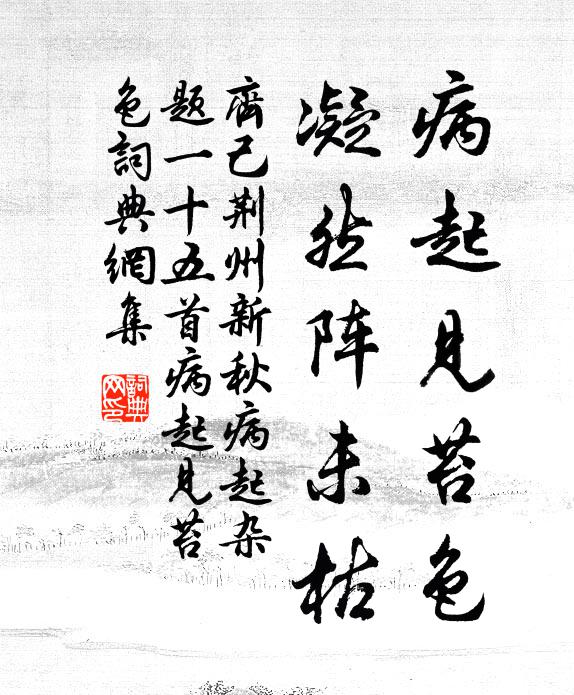 病起见苔色
凝然阵未枯
齊己荆州新秋病起杂
题一十五首病起见苔
色詞典網集
詞典
网印